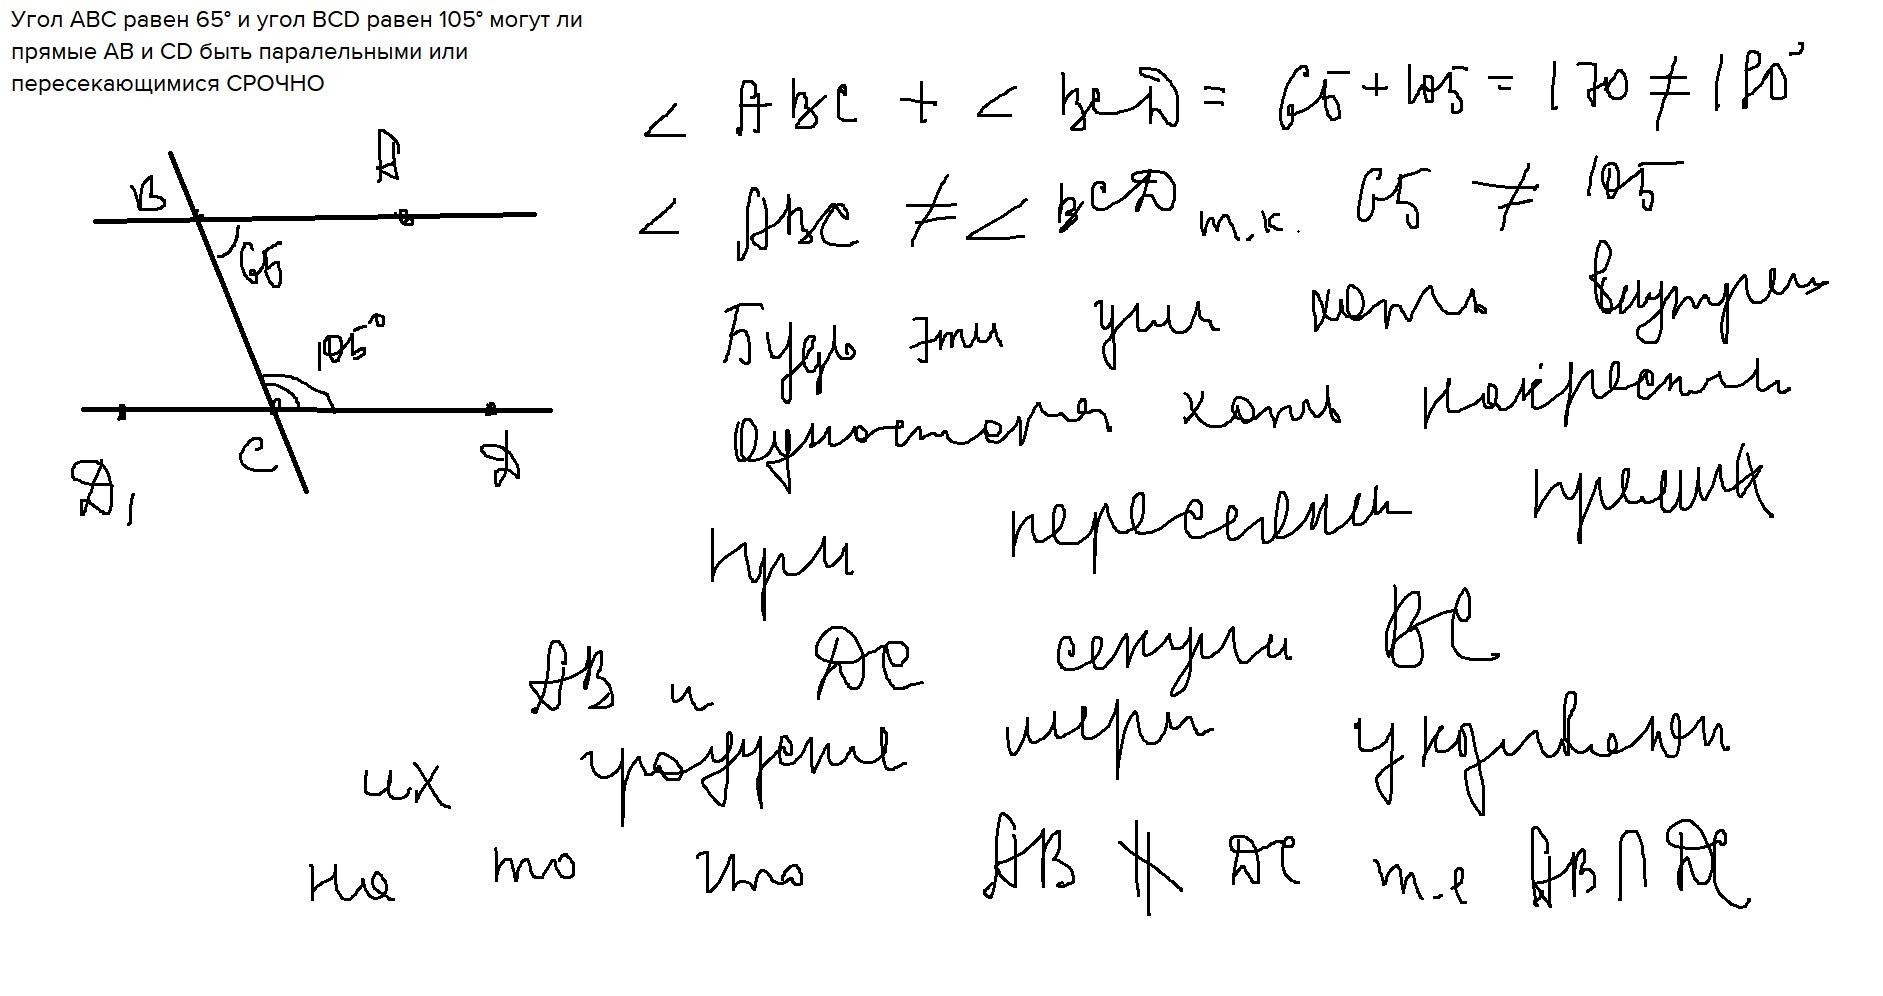 Угол ABC равен 65° и угол BCD равен 105° могут ли
прямые AB и CD быть паралельными или
пересекающимися СРОЧНО
∠ ABC + ∠ BCD = 65 + 105 = 170 ≠ 180°
∠ ABC ≠ ∠ BCD т.к. 65 ≠ 105
B
A
65
105°
C
D
D1
Будь эти углы хоть внутрен
односторон хоть накрестли
при пересечении прямых
AB и DC секущи BC
их градусные меры указывают
на то что AB ∦ DC т.е AB ∩ DC